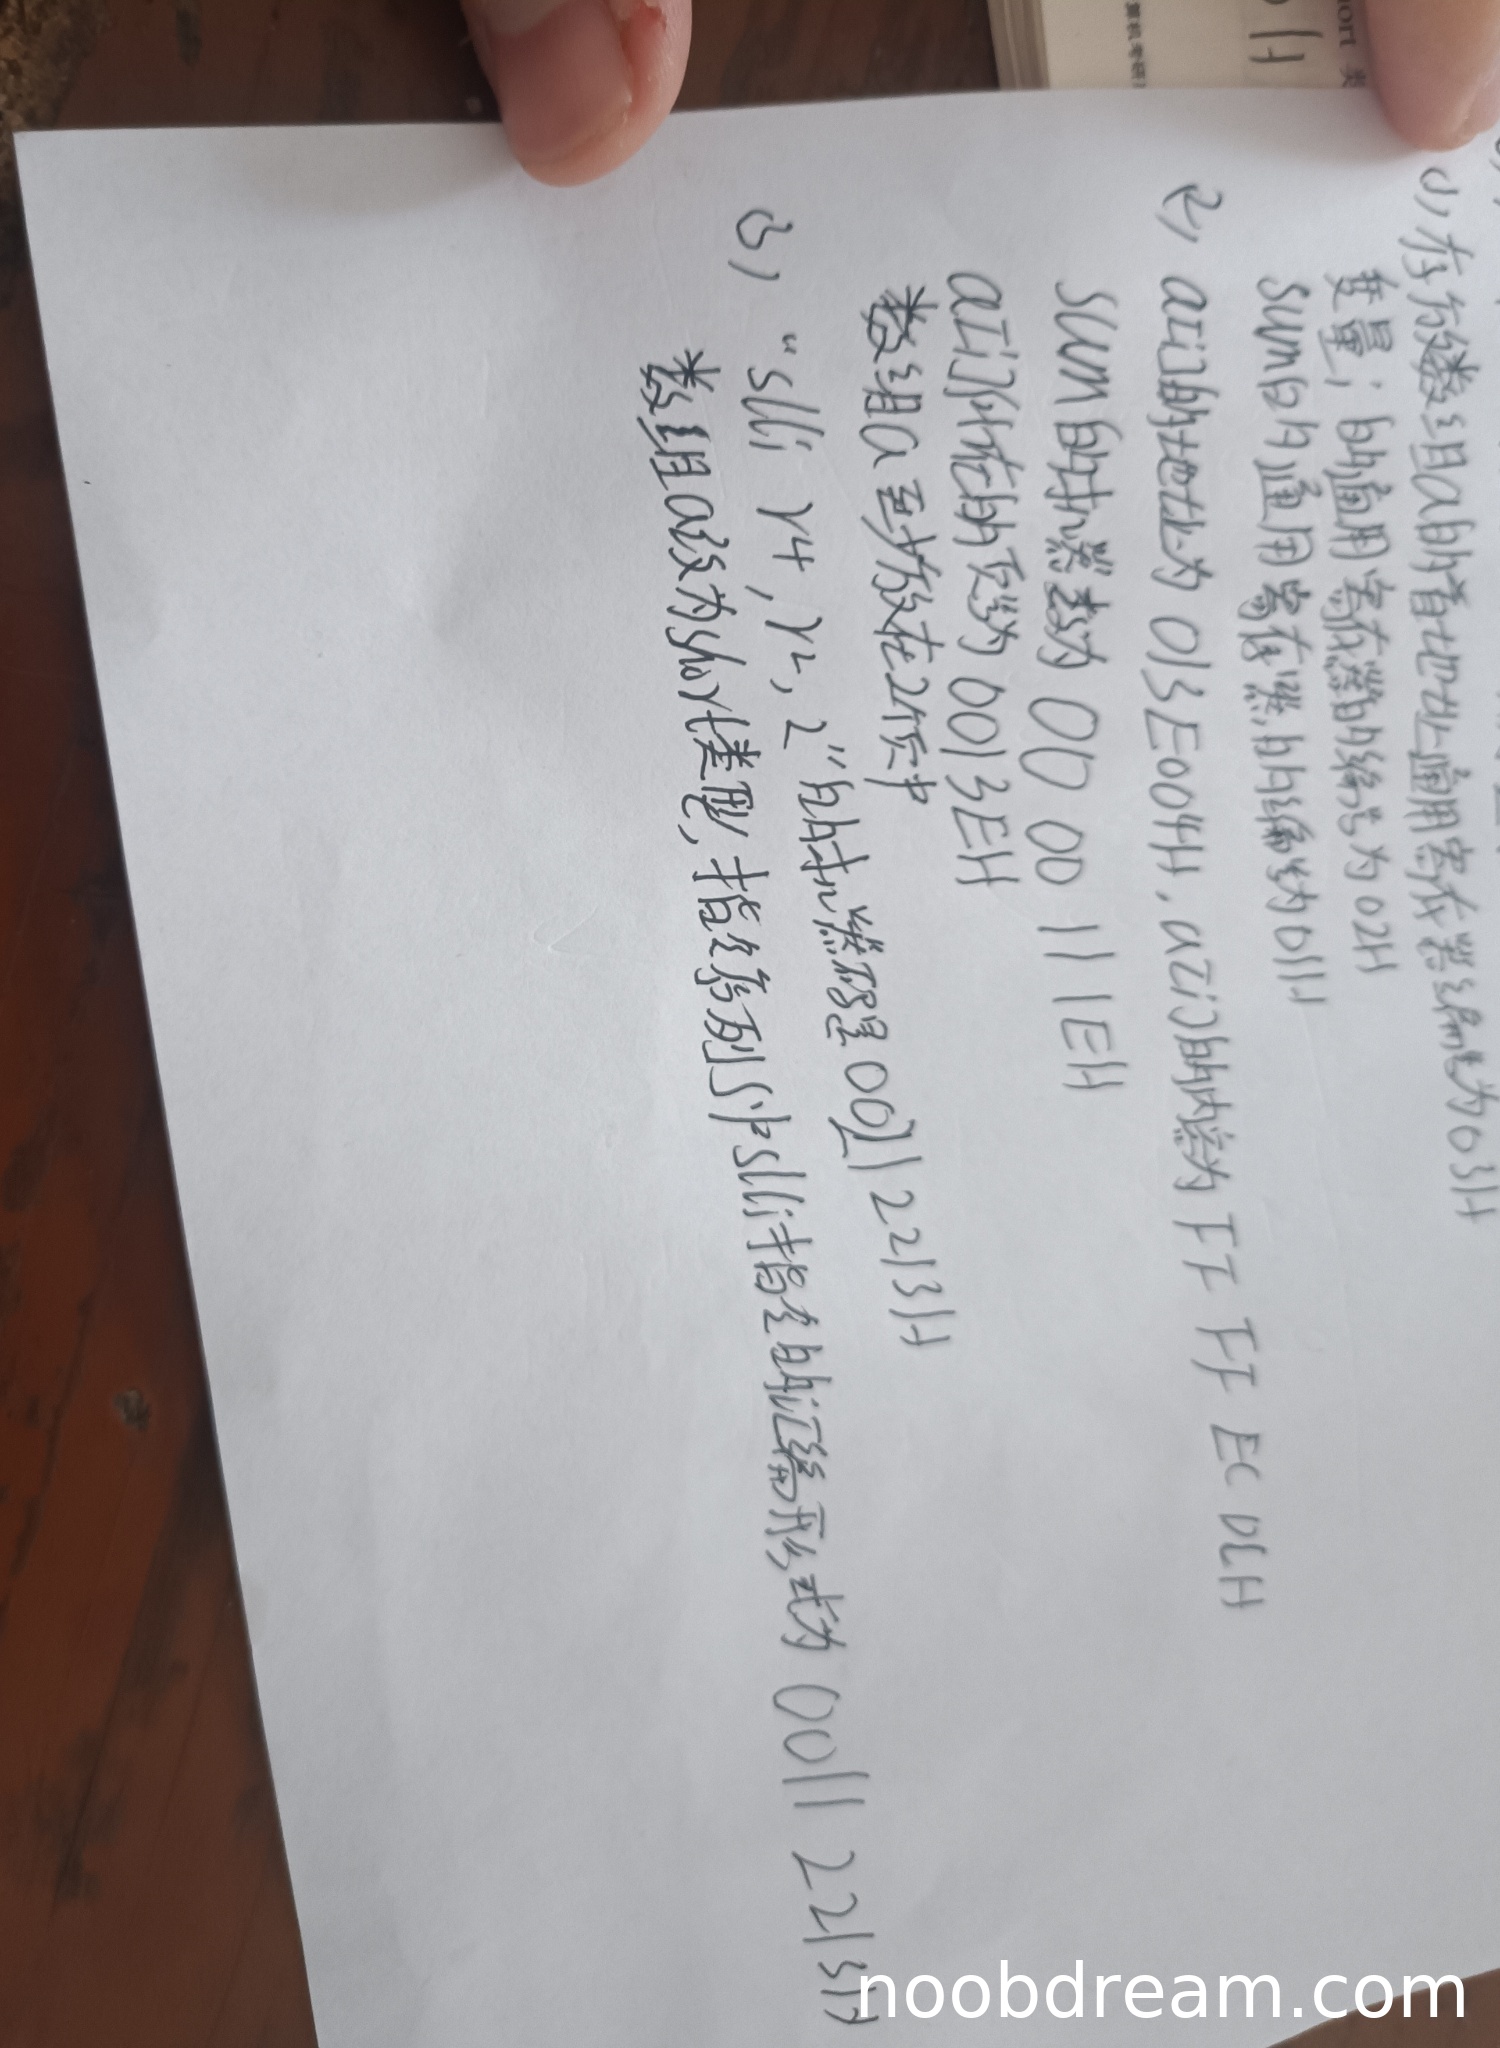 ort 类
算机考研
1), 存放数组a的首地址通用寄存器编号为03H
变量i的通用寄存器的编号为02H
sum的通用寄存器的编号为01H
2), a[i]的地址为013E004H, a[i]的内容为FF FF EC DCH
sum的机器数为 00 00 11 1EH
a[i]所在的页号为0013EH
数组a至少放在2个页中
3), "slli r4, r2, 2"的机器码是00212213H
数组a改为short类型, 指令序列S中slli指令的汇编形式为 0011 2213H
noobdream.com